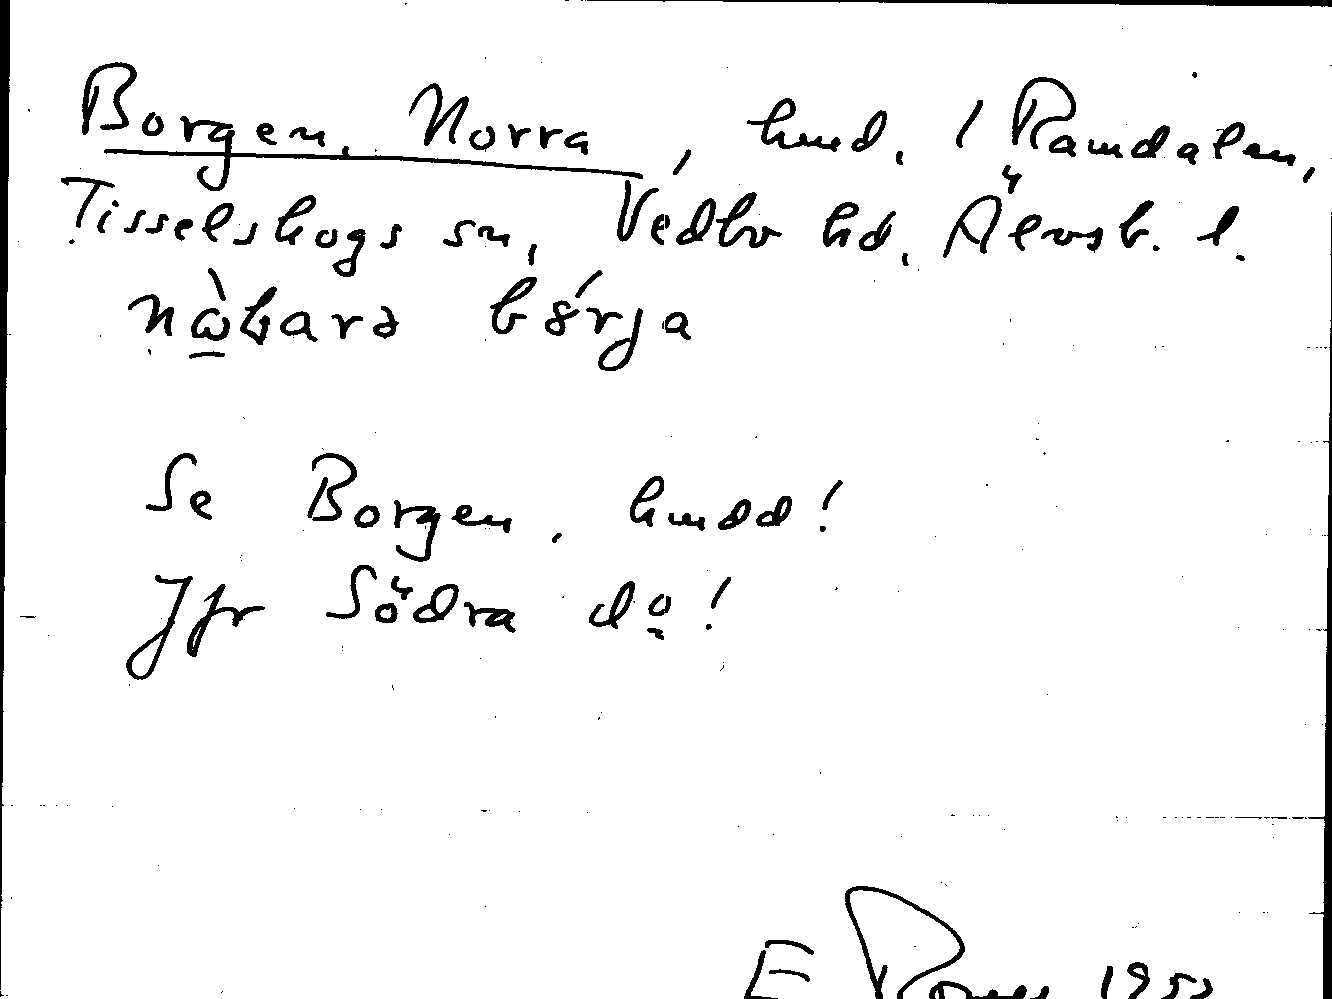 Borgen, Norra, hmd. / Ramdalen,
Tisselskogs sn, Vedbo hd, Älvsb. l.
nàbara bórja
Se Borgen, hmdd!
Jfr Södra do!
E 1953